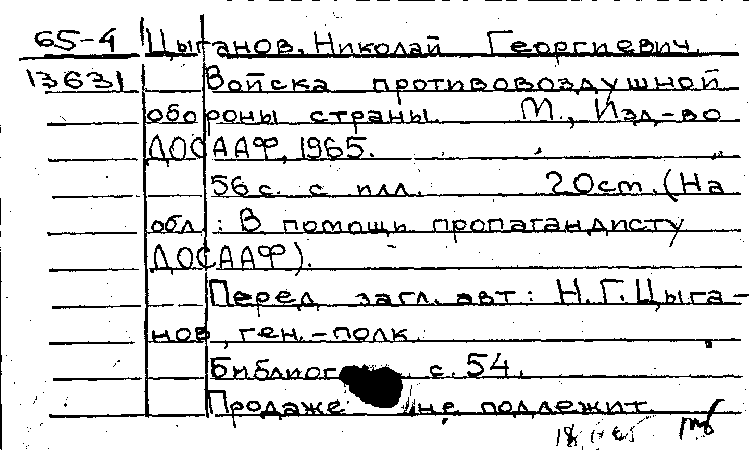 65-4 Цыганов, Николай Георгиевич
13631 Войска противовоздушной
обороны страны. М., Изд-во
ДОСААФ, 1965.
56 с. с илл. 20 см. (На
обл.: В помощи пропагандисту
ДОСААФ).
Перед загл. авт: Н.Г. Цыга-
нов, ген.-полк.
Библиог с. 54.
Продаже не подлежит